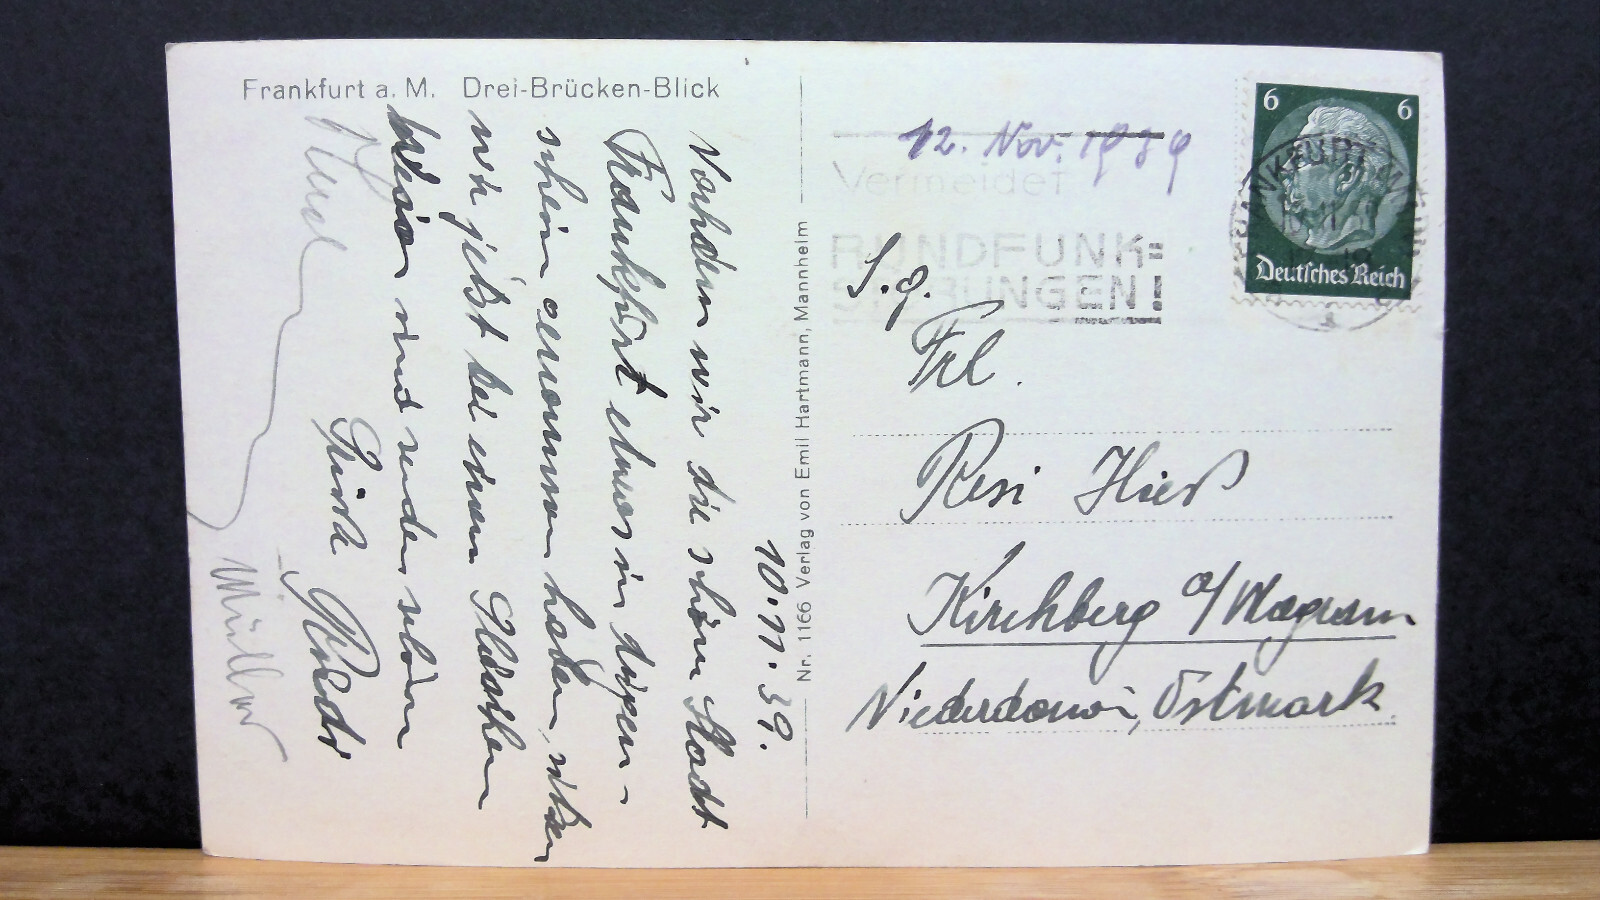 Frankfurt a. M. Drei-Brücken-Blick
10.11.39.
Nachdem wir die schöne Stadt
Frankfurt etwas in Augen-
schein genommen haben, sitzen
wir jetzt bei einem Gläschen
und senden schöne
Müller
Nr. 1166 Verlag von Emil Hartmann, Mannheim
12. Nov. 1939
Vermeidet
RUNDFUNK=
STÖRUNGEN!
6 6
Deutsches Reich
FRANKFURT
S. g.
Frl.
Resi Hieß
Kirchberg a/Wagram
Niederdonau, Ostmark